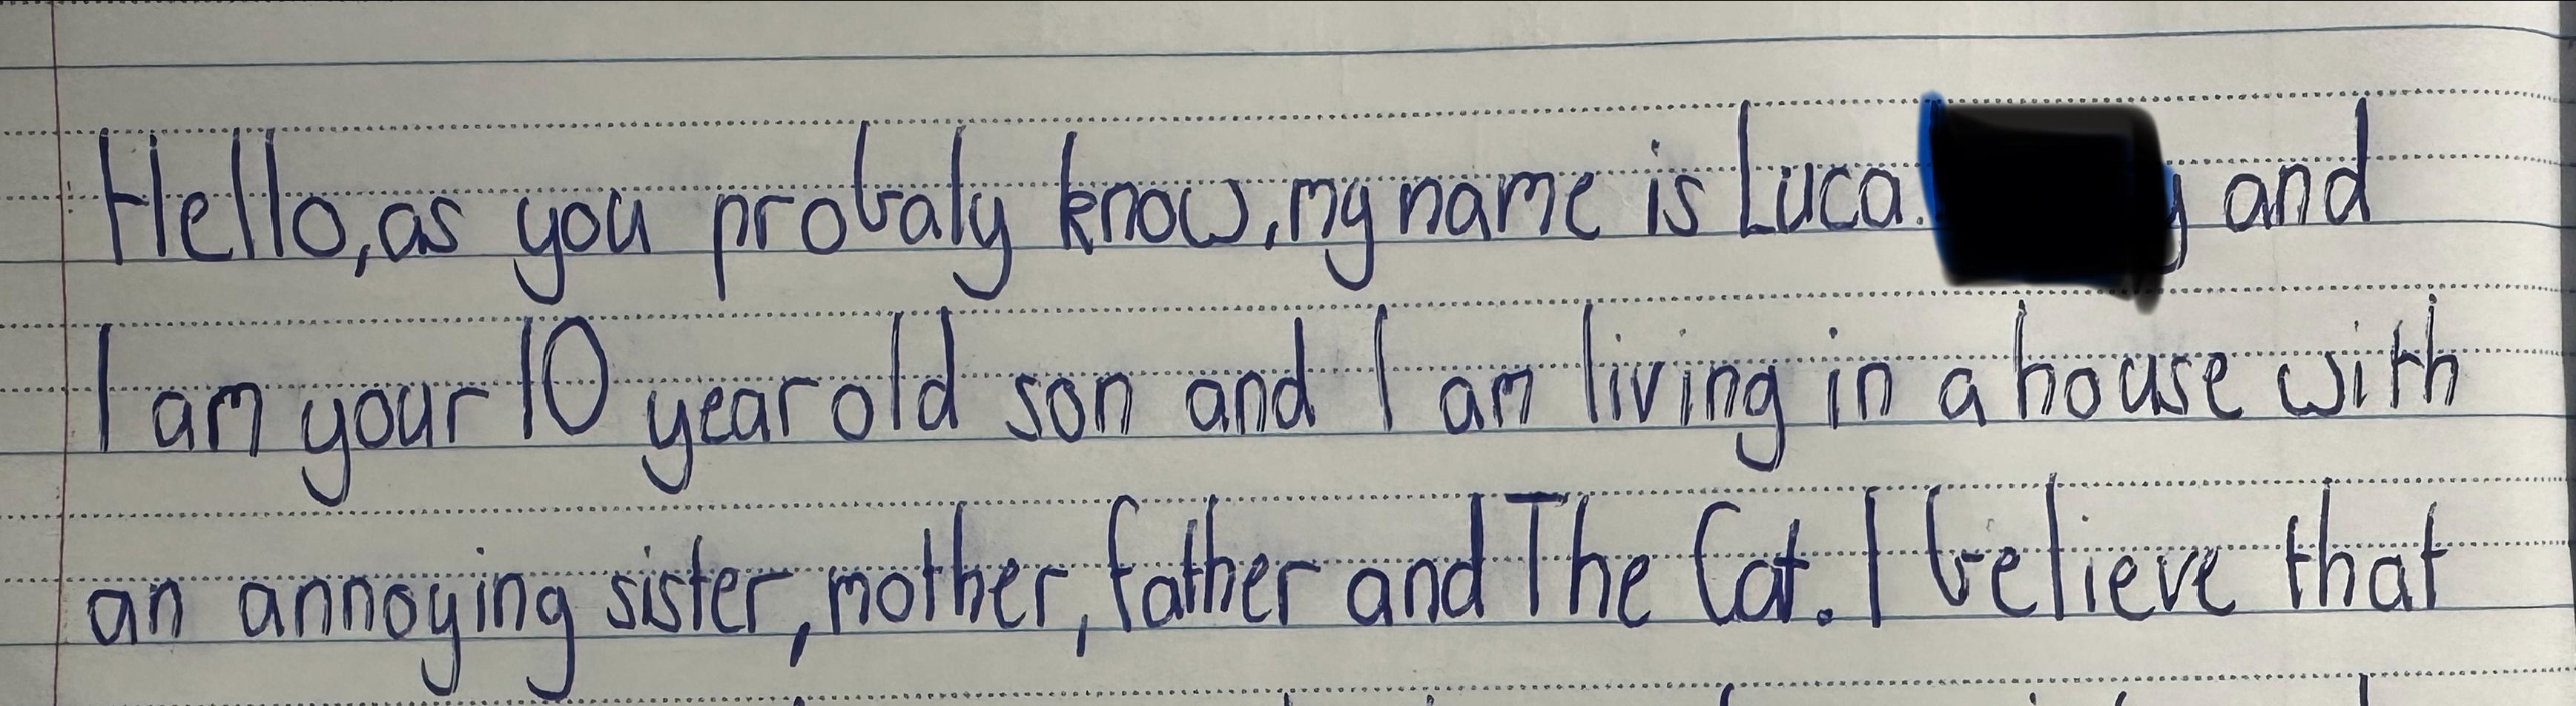 Hello, as you probaly know, my name is Luca. and
I am your 10 year old son and I am living in a house with
an annoying sister, mother, father and The Cat. I believe that